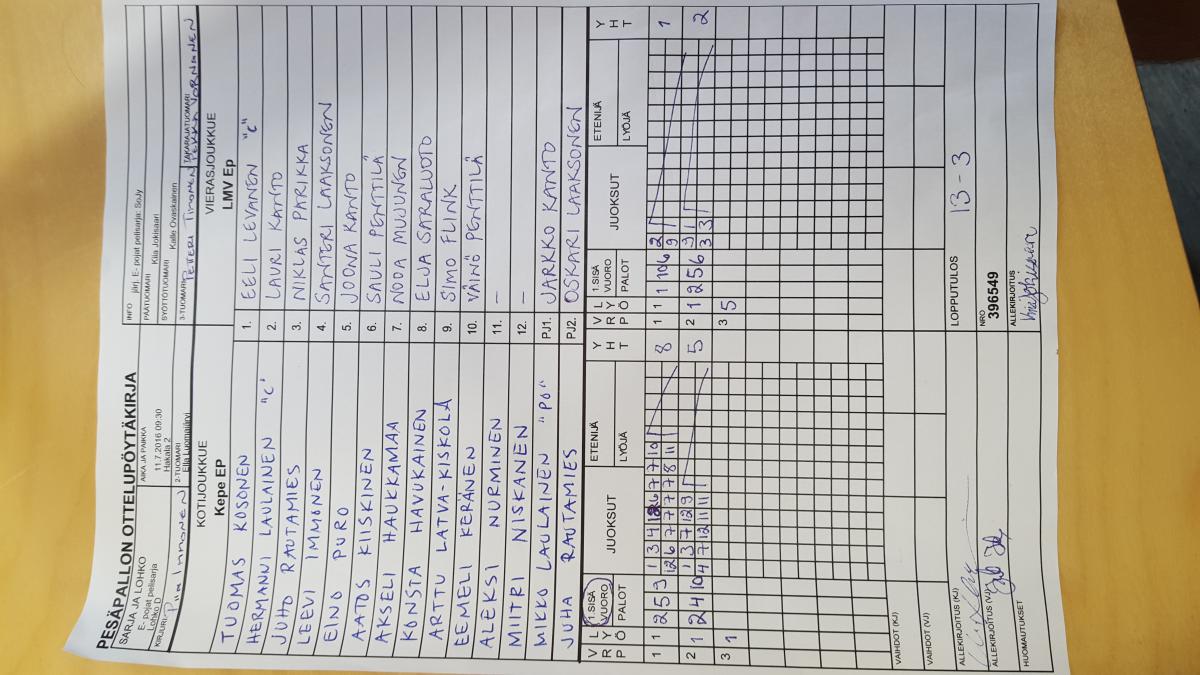 PESÄPALLON OTTELUPÖYTÄKIRJA
SARJA JA LOHKO
E- pojat pelisarja
Lohko D
AIKA JA PAIKKA
11.7.2016 09:30
Hakala 2
INFO järj. E- pojat pelisarja: SoJy
PÄÄTUOMARI Kiia Jokisaari
SYÖTTÖTUOMARI Kalle Ovaskainen
KIRJURI Piia Immonen
2-TUOMARI
Ella Luomajärvi
3-TUOMARI Petteri Timonen
TAKARAJATUOMARI
PEKKA VORNANEN
KOTIJOUKKUE
Kepe EP
VIERASJOUKKUE
LMV Ep
TUOMAS KOSONEN 1. EELI LEVANEN "C"
HERMANNI LAULAINEN "C" 2. LAURI KANTO
JUHO RAUTAMIES 3. NIKLAS PARIKKA
LEEVI IMMONEN 4. SANTERI LAAKSONEN
EINO PURO 5. JOONA KANTO
AATOS KIISKINEN 6. SAULI PENTTILÄ
AKSELI HAUKKAMAA 7. NOOA MUJUNEN
KONSTA HAVUKAINEN 8. ELJA SARALUOTO
ARTTU LATVA-KISKOLA 9. SIMO FLINK
EEMELI KERÄNEN 10. VÄINÖ PENTTILÄ
ALEKSI NURMINEN 11. –
MIITRI NISKANEN 12. –
MIKKO LAULAINEN "PO" PJ1. JARKKO KANTO
JUHA RAUTAMIES PJ2. OSKARI LAAKSONEN
V R P L Y Ö 1.SISÄ VUORO PALOT JUOKSUT ETENIJÄ LYÖJÄ Y H T
V R P L Y Ö 1.SISÄ VUORO PALOT JUOKSUT ETENIJÄ LYÖJÄ Y H T
1 1 2 5 9 8 1 1 1 10 6 2 9 1
2 1 2 4 10 1 3 7 12 9 5 2 1 2 5 6 3 1 2
4 7 12 11 11 3 3
3 1 3 5
VAIHDOT (KJ)
VAIHDOT (VJ)
ALLEKIRJOITUS (KJ)
LOPPUTULOS 13 - 3
ALLEKIRJOITUS (VJ)
NRO
396549
HUOMAUTUKSET
ALLEKIRJOITUS